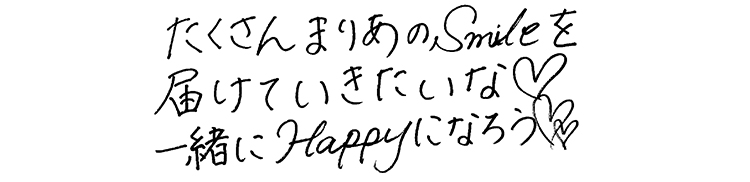 たくさんまりあのSmileを
届けていきたいな♡
一緒にHappyになろう♡♡